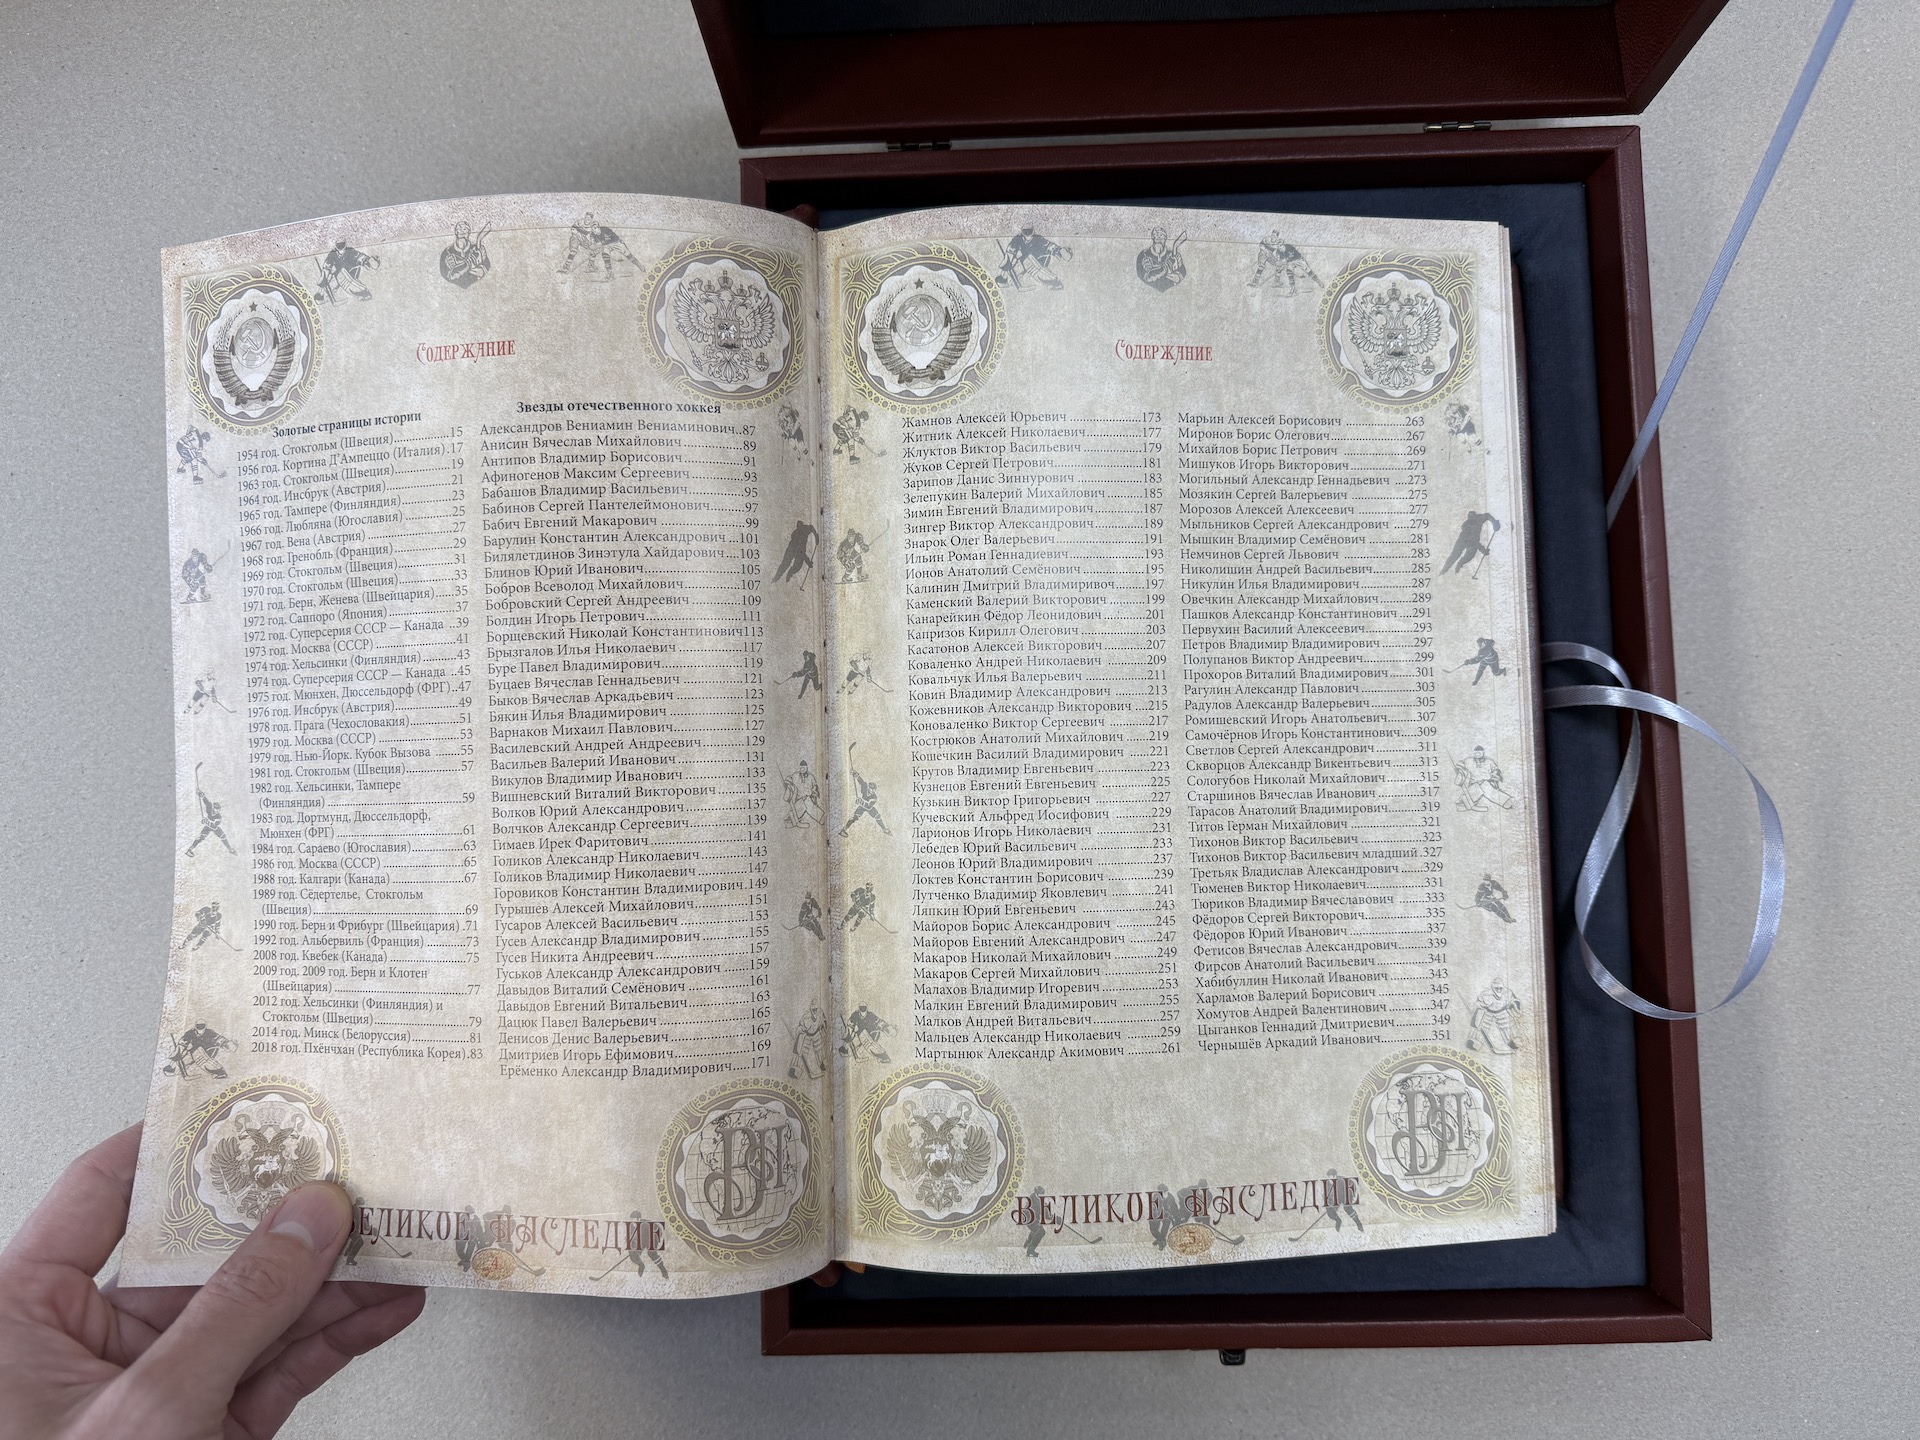 Содержание
Золотые страницы истории
1954 год. Стокгольм (Швеция)..............15
1956 год. Кортина Д'Ампеццо (Италия).17
1963 год. Стокгольм (Швеция)..............19
1964 год. Инсбрук (Австрия)................21
1965 год. Тампере (Финляндия).............23
1966 год. Любляна (Югославия)............25
1967 год. Вена (Австрия).....................27
1968 год. Гренобль (Франция)..............29
1969 год. Стокгольм (Швеция)..............31
1970 год. Стокгольм (Швеция)..............33
1971 год. Берн, Женева (Швейцария).....35
1972 год. Саппоро (Япония).................37
1972 год. Суперсерия СССР — Канада ..39
1973 год. Москва (СССР).....................41
1974 год. Хельсинки (Финляндия).........43
1974 год. Суперсерия СССР — Канада ..45
1975 год. Мюнхен, Дюссельдорф (ФРГ)..47
1976 год. Инсбрук (Австрия)................49
1978 год. Прага (Чехословакия).............51
1979 год. Москва (СССР).....................53
1979 год. Нью-Йорк. Кубок Вызова ......55
1981 год. Стокгольм (Швеция)..............57
1982 год. Хельсинки, Тампере
(Финляндия)....................................59
1983 год. Дортмунд, Дюссельдорф,
Мюнхен (ФРГ)................................61
1984 год. Сараево (Югославия)............63
1986 год. Москва (СССР).....................65
1988 год. Калгари (Канада)..................67
1989 год. Сёдертелье, Стокгольм
(Швеция)........................................69
1990 год. Берн и Фрибург (Швейцария) .71
1992 год. Альбервиль (Франция) ..........73
2008 год. Квебек (Канада)...................75
2009 год. 2009 год. Берн и Клотен
(Швейцария)...................................77
2012 год. Хельсинки (Финляндия) и
Стокгольм (Швеция).........................79
2014 год. Минск (Белоруссия)..............81
2018 год. Пхёнчхан (Республика Корея).83
Звезды отечественного хоккея
Александров Вениамин Вениаминович..87
Анисин Вячеслав Михайлович..............89
Антипов Владимир Борисович..............91
Афиногенов Максим Сергеевич............93
Бабашов Владимир Васильевич............95
Бабинов Сергей Пантелеймонович........97
Бабич Евгений Макарович ..................99
Барулин Константин Александрович ...101
Билялетдинов Зинэтула Хайдарович....103
Блинов Юрий Иванович.....................105
Бобров Всеволод Михайлович.............107
Бобровский Сергей Андреевич...........109
Болдин Игорь Петрович.....................111
Борщевский Николай Константинович113
Брызгалов Илья Николаевич ..............117
Буре Павел Владимирович..................119
Буцаев Вячеслав Геннадьевич.............121
Быков Вячеслав Аркадьевич...............123
Бякин Илья Владимирович.................125
Варнаков Михаил Павлович................127
Василевский Андрей Андреевич..........129
Васильев Валерий Иванович...............131
Викулов Владимир Иванович..............133
Вишневский Виталий Викторович........135
Волков Юрий Александрович..............137
Волчков Александр Сергеевич.............139
Гимаев Ирек Фаритович.....................141
Голиков Александр Николаевич...........143
Голиков Владимир Николаевич............147
Горовиков Константин Владимирович.149
Гурышев Алексей Михайлович............151
Гусаров Алексей Васильевич...............153
Гусев Александр Владимирович...........155
Гусев Никита Андреевич....................157
Гуськов Александр Александрович ......159
Давыдов Виталий Семёнович..............161
Давыдов Евгений Витальевич..............163
Дацюк Павел Валерьевич....................165
Денисов Денис Валерьевич.................167
Дмитриев Игорь Ефимович.................169
Ерёменко Александр Владимирович.....171
ВЕЛИКОЕ НАСЛЕДИЕ
4
Содержание
Жамнов Алексей Юрьевич .................173
Житник Алексей Николаевич..............177
Жлуктов Виктор Васильевич...............179
Жуков Сергей Петрович.....................181
Зарипов Данис Зиннурович................183
Зелепукин Валерий Михайлович.........185
Зимин Евгений Владимирович............187
Зингер Виктор Александрович.............189
Знарок Олег Валерьевич.....................191
Ильин Роман Геннадиевич..................193
Ионов Анатолий Семёнович................195
Калинин Дмитрий Владимиривоч........197
Каменский Валерий Викторович .........199
Канарейкин Фёдор Леонидович..........201
Капризов Кирилл Олегович................203
Касатонов Алексей Викторович..........207
Коваленко Андрей Николаевич ..........209
Ковальчук Илья Валерьевич...............211
Ковин Владимир Александрович .........213
Кожевников Александр Викторович ....215
Коноваленко Виктор Сергеевич ..........217
Кострюков Анатолий Михайлович ......219
Кошечкин Василий Владимирович .....221
Крутов Владимир Евгеньевич .............223
Кузнецов Евгений Евгеньевич.............225
Кузькин Виктор Григорьевич ..............227
Кучевский Альфред Иосифович ..........229
Ларионов Игорь Николаевич ..............231
Лебедев Юрий Васильевич.................233
Леонов Юрий Владимирович..............237
Локтев Константин Борисович............239
Лутченко Владимир Яковлевич ...........241
Ляпкин Юрий Евгеньевич ..................243
Майоров Борис Александрович...........245
Майоров Евгений Александрович .......247
Макаров Николай Михайлович...........249
Макаров Сергей Михайлович..............251
Малахов Владимир Игоревич..............253
Малкин Евгений Владимирович ..........255
Малков Андрей Витальевич................257
Мальцев Александр Николаевич .........259
Мартынюк Александр Акимович .........261
Марьин Алексей Борисович ...............263
Миронов Борис Олегович...................267
Михайлов Борис Петрович ................269
Мишуков Игорь Викторович..............271
Могильный Александр Геннадьевич ....273
Мозякин Сергей Валерьевич ..............275
Морозов Алексей Алексеевич..............277
Мыльников Сергей Александрович .....279
Мышкин Владимир Семёнович...........281
Немчинов Сергей Львович .................283
Николишин Андрей Васильевич..........285
Никулин Илья Владимирович..............287
Овечкин Александр Михайлович.........289
Пашков Александр Константинович ....291
Первухин Василий Алексеевич............293
Петров Владимир Владимирович.........297
Полупанов Виктор Андреевич.............299
Прохоров Виталий Владимирович........301
Рагулин Александр Павлович..............303
Радулов Александр Валерьевич............305
Ромишевский Игорь Анатольевич........307
Самочёрнов Игорь Константинович.....309
Светлов Сергей Александрович...........311
Скворцов Александр Викентьевич .......313
Сологубов Николай Михайлович.........315
Старшинов Вячеслав Иванович ..........317
Тарасов Анатолий Владимирович........319
Титов Герман Михайлович .................321
Тихонов Виктор Васильевич...............323
Тихонов Виктор Васильевич младший .327
Третьяк Владислав Александрович......329
Тюменев Виктор Николаевич..............331
Тюриков Владимир Вячеславович ........333
Фёдоров Сергей Викторович..............335
Фёдоров Юрий Иванович..................337
Фетисов Вячеслав Александрович........339
Фирсов Анатолий Васильевич.............341
Хабибуллин Николай Иванович..........343
Харламов Валерий Борисович ............345
Хомутов Андрей Валентинович...........347
Цыганков Геннадий Дмитриевич.........349
Чернышёв Аркадий Иванович............351
ВЕЛИКОЕ НАСЛЕДИЕ
5